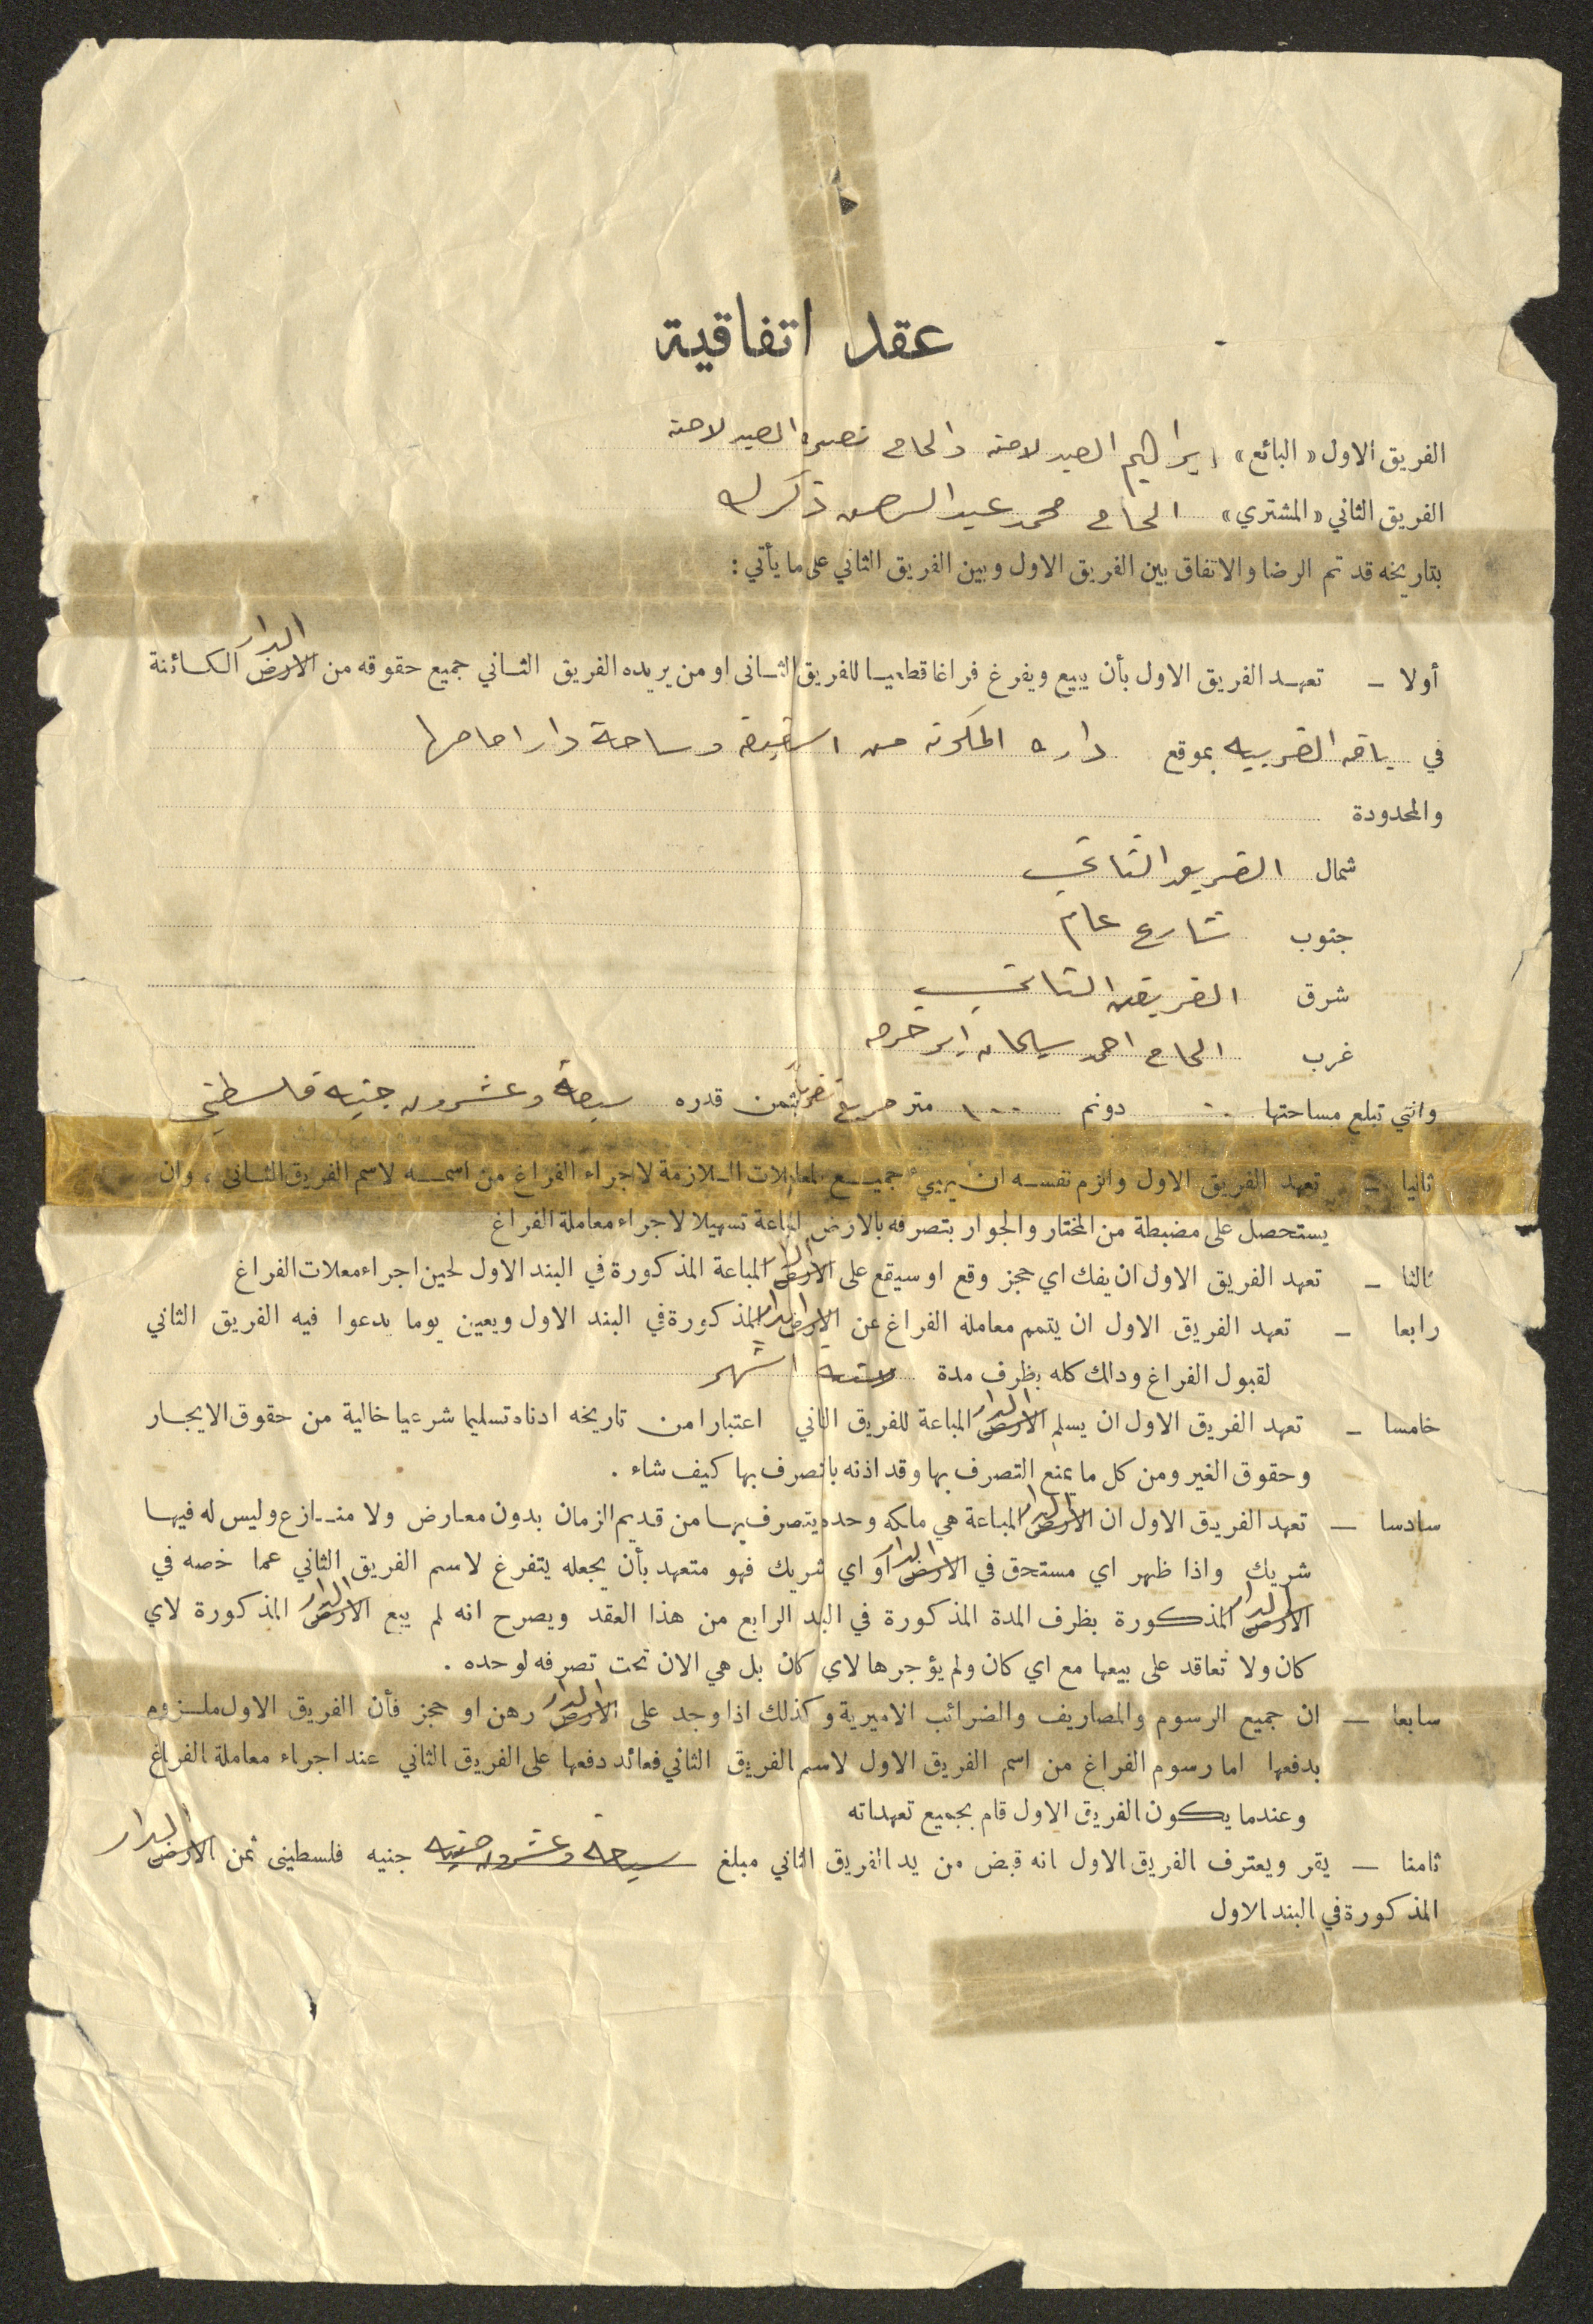 عقد اتفاقية
الفريق الاول «البائع» ابراهيم الصيد لاحته والحاج نصر الصيد لاحته
الفريق الثاني «المشتري» الحاج محمد عبد الرحمن
بتاريخه قد تم الرضا والاتفاق بين الفريق الاول وبين الفريق الثاني على ما يأتي :
الدار
أولا — تعهد الفريق الاول بأن يبيع ويفرغ فراغا قطعيا للفريق الثاني او من يريده الفريق الثاني جميع حقوقه من الارض الكائنة
في باقه الغربيه بموقع داره المكونه من وساحة دار امامها
والمحدودة
شمال الفريق الثاني
جنوب شارع عام
شرق الفريق الثاني
غرب الحاج احمد
والتي تبلغ مساحتها ٠٠ دونم ١٠٠ متر مربع تقريبا بثمن قدره سبعة وعشرون جنيه فلسطيني
ثانيا — تعهد الفريق الاول والزم نفسه ان يهيئ جميع المعاملات اللازمة لاجراء الفراغ من اسمه لاسم الفريق الثاني ، وان
يستحصل على مضبطة من المختار والجوار بتصرفه بالارض المباعة تسهيلا لاجراء معاملة الفراغ
الدار
ثالثا — تعهد الفريق الاول ان يفك اي حجز وقع او سيقع على الارض المباعة المذكورة في البند الاول لحين اجراء معملات الفراغ
الدار
رابعا — تعهد الفريق الاول ان يتمم معاملة الفراغ عن الارض المذكورة في البند الاول ويعين يوما يدعوا فيه الفريق الثاني
لقبول الفراغ وذالك كله بظرف مدة ستة اشهر
الدار
خامسا — تعهد الفريق الاول ان يسلم الارض المباعة للفريق الثاني اعتبارا من تاريخه ادناه تسليما شرعيا خالية من حقوق الايجار
وحقوق الغير ومن كل ما يمنع التصرف بها وقد اذنه بالتصرف بها كيف شاء .
الدار
سادسا — تعهد الفريق الاول ان الارض المباعة هي ملكه وحده يتصرف بها من قديم الزمان بدون معارض ولا منازع وليس له فيها
الدار
شريك واذا ظهر اي مستحق في الارض او اي شريك فهو متعهد بأن يجعله يتفرغ لاسم الفريق الثاني عما خصه في
الدار الدار
الارض المذكورة بظرف المدة المذكورة في البد الرابع من هذا العقد ويصرح انه لم يبع الارض المذكورة لاي
كان ولا تعاقد على بيعها مع اي كان ولم يؤجرها لاي كان بل هي الان تحت تصرفه لوحده .
الدار
سابعا — ان جميع الرسوم والمصاريف والضرائب الاميرية وكذلك اذا وجد على الارض رهن او حجز فأن الفريق الاول ملزوم
بدفعها اما رسوم الفراغ من اسم الفريق الاول لاسم الفريق الثاني فعائد دفعها على الفريق الثاني عند اجراء معاملة الفراغ
وعندما يكون الفريق الاول قام بجميع تعهداته
الدار
ثامنا — يقر ويعترف الفريق الاول انه قبض من يد الفريق الثاني مبلغ سبعة وعشرون جنيه جنيه فلسطيني ثمن الارض
المذكورة في البند الاول